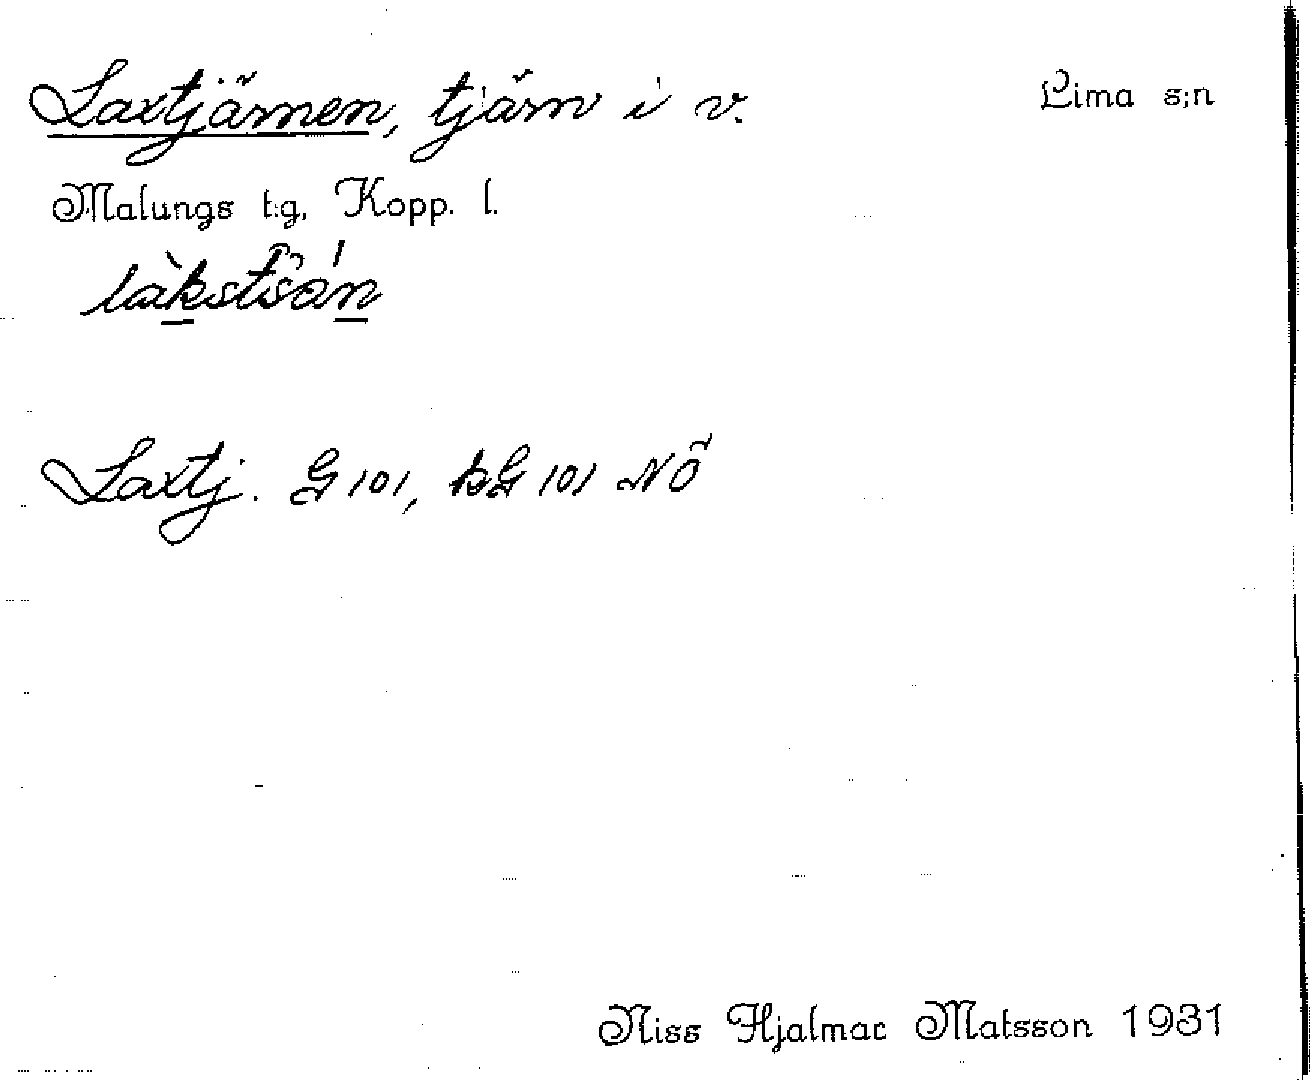 Laxtjärnen, tjärn i v. Lima s:n
Malungs t:g, Kopp. l.
Laxtj. G 101, kG 101 NÖ
Niss Hjalmar Matsson 1931